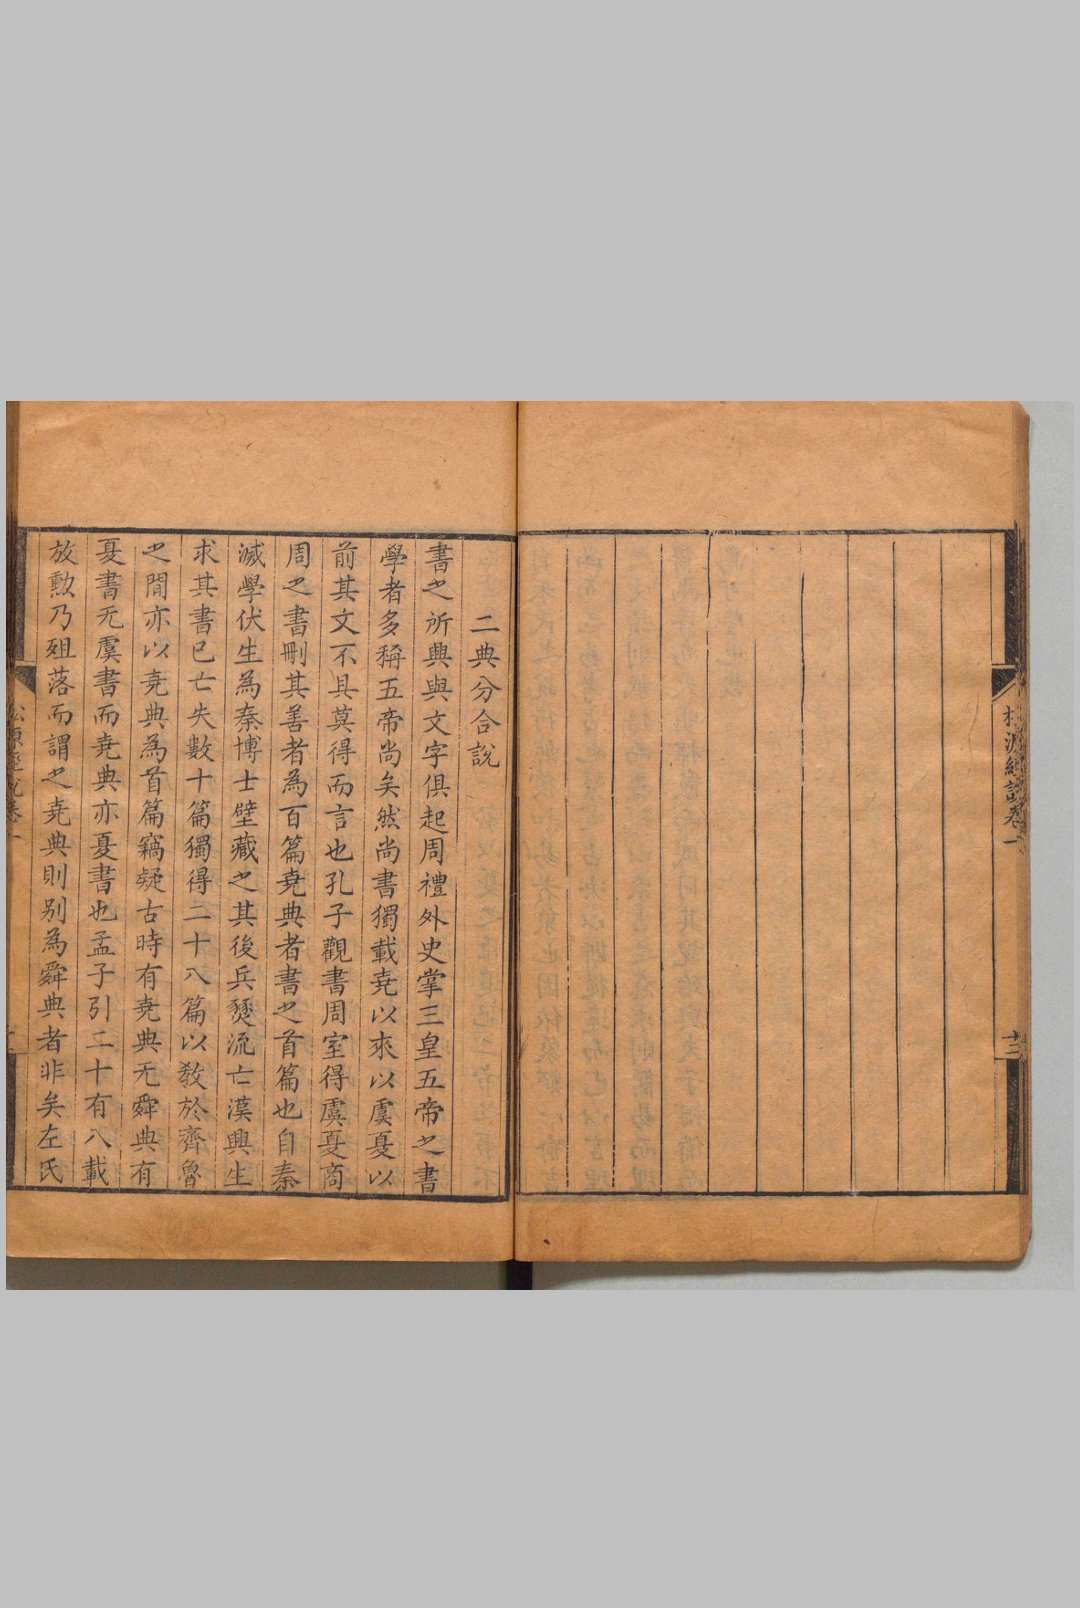 二典分合説
書之所興與文字俱起周禮外史掌三皇五帝之書
學者多稱五帝尚矣然尚書獨載堯以來以虞夏以
前其文不具莫得而言也孔子觀書周室得虞夏商
周之書刪其善者為百篇堯典者書之首篇也自秦
滅學伏生為秦博士壁藏之其後兵燹流亡漢興生
求其書已亡失數十篇獨得二十八篇以教於齊魯
之間亦以堯典為首篇竊疑古時有堯典无舜典有
夏書无虞書而堯典亦夏書也孟子引二十有八載
放勲乃殂落而謂之堯典則别為舜典者非矣左氏
松源經説卷一